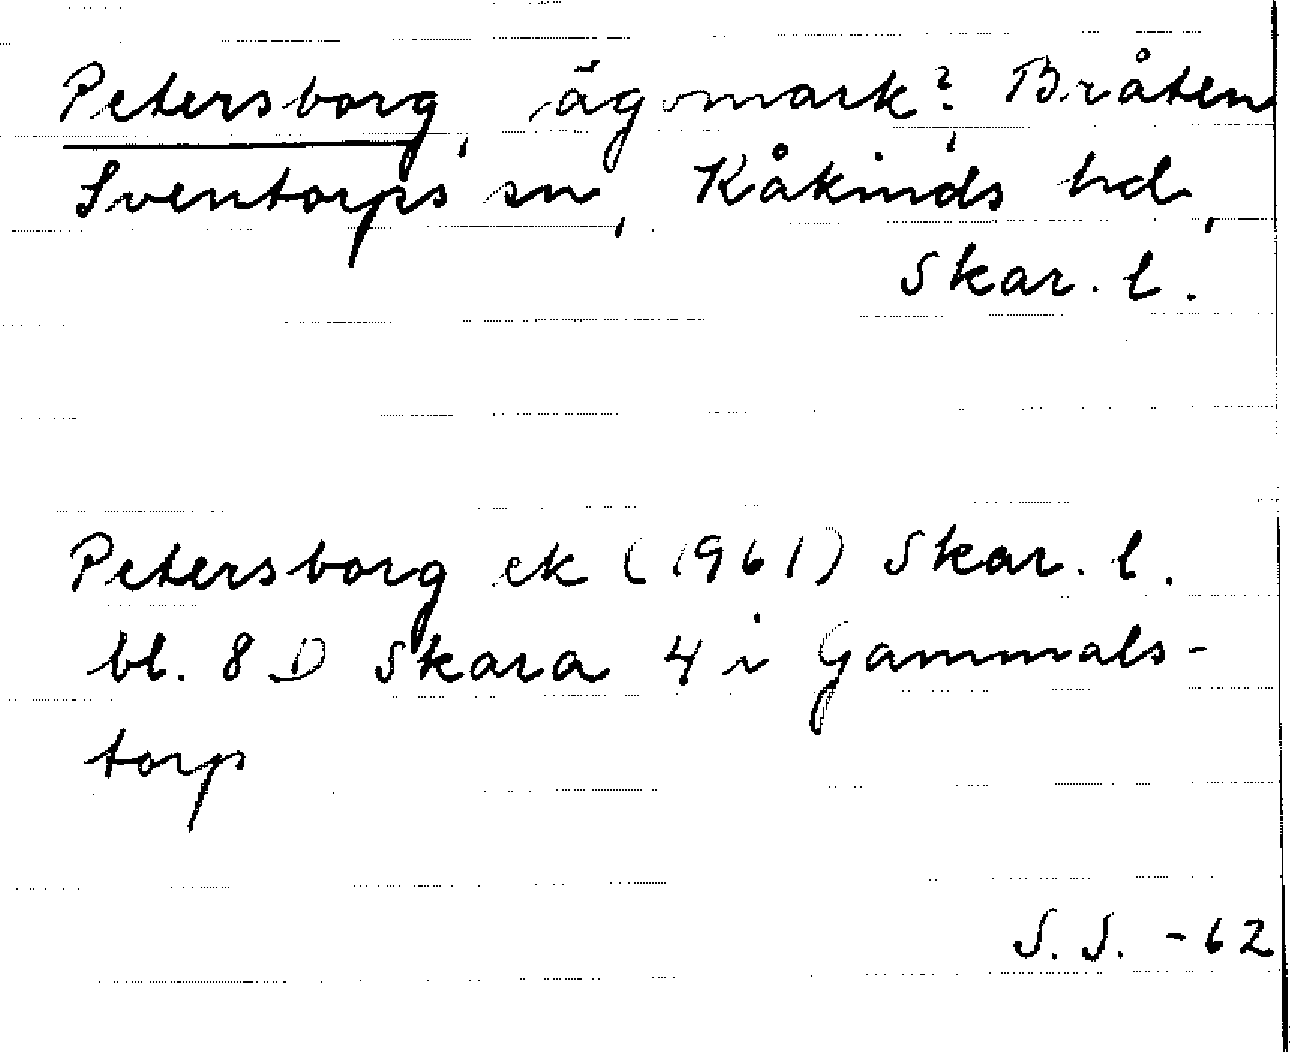 Petersborg, ägomark?, Bråten
Sventorps sn, Kåkinds hd,
Skar. l.
Petersborg ek (1961) Skar. l.
bl. 8 D Skara 4 i Gammals-
torp
S.S. -62